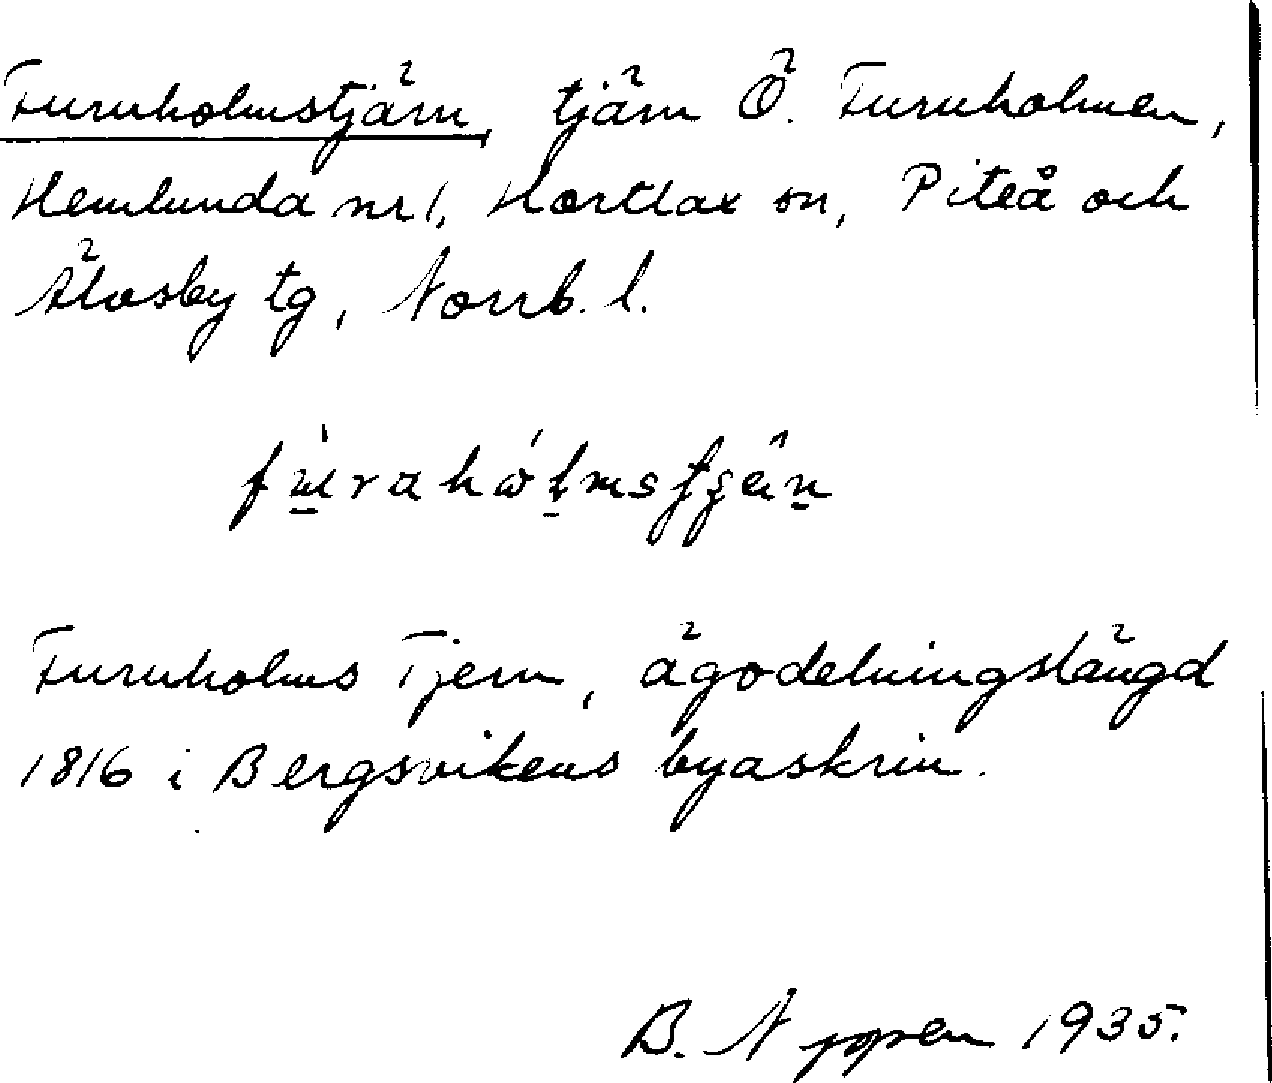 Furuholmstjärn, tjärn Ö. Furuholmen,
Hemlunda nr 1, Hortlax sn, Piteå och
Älvsby tg, Norrb. l.
Furuholms Tjern, ägodelningslängd
1816 i Bergsvikens byaskrin.
B. Nygren 1935.